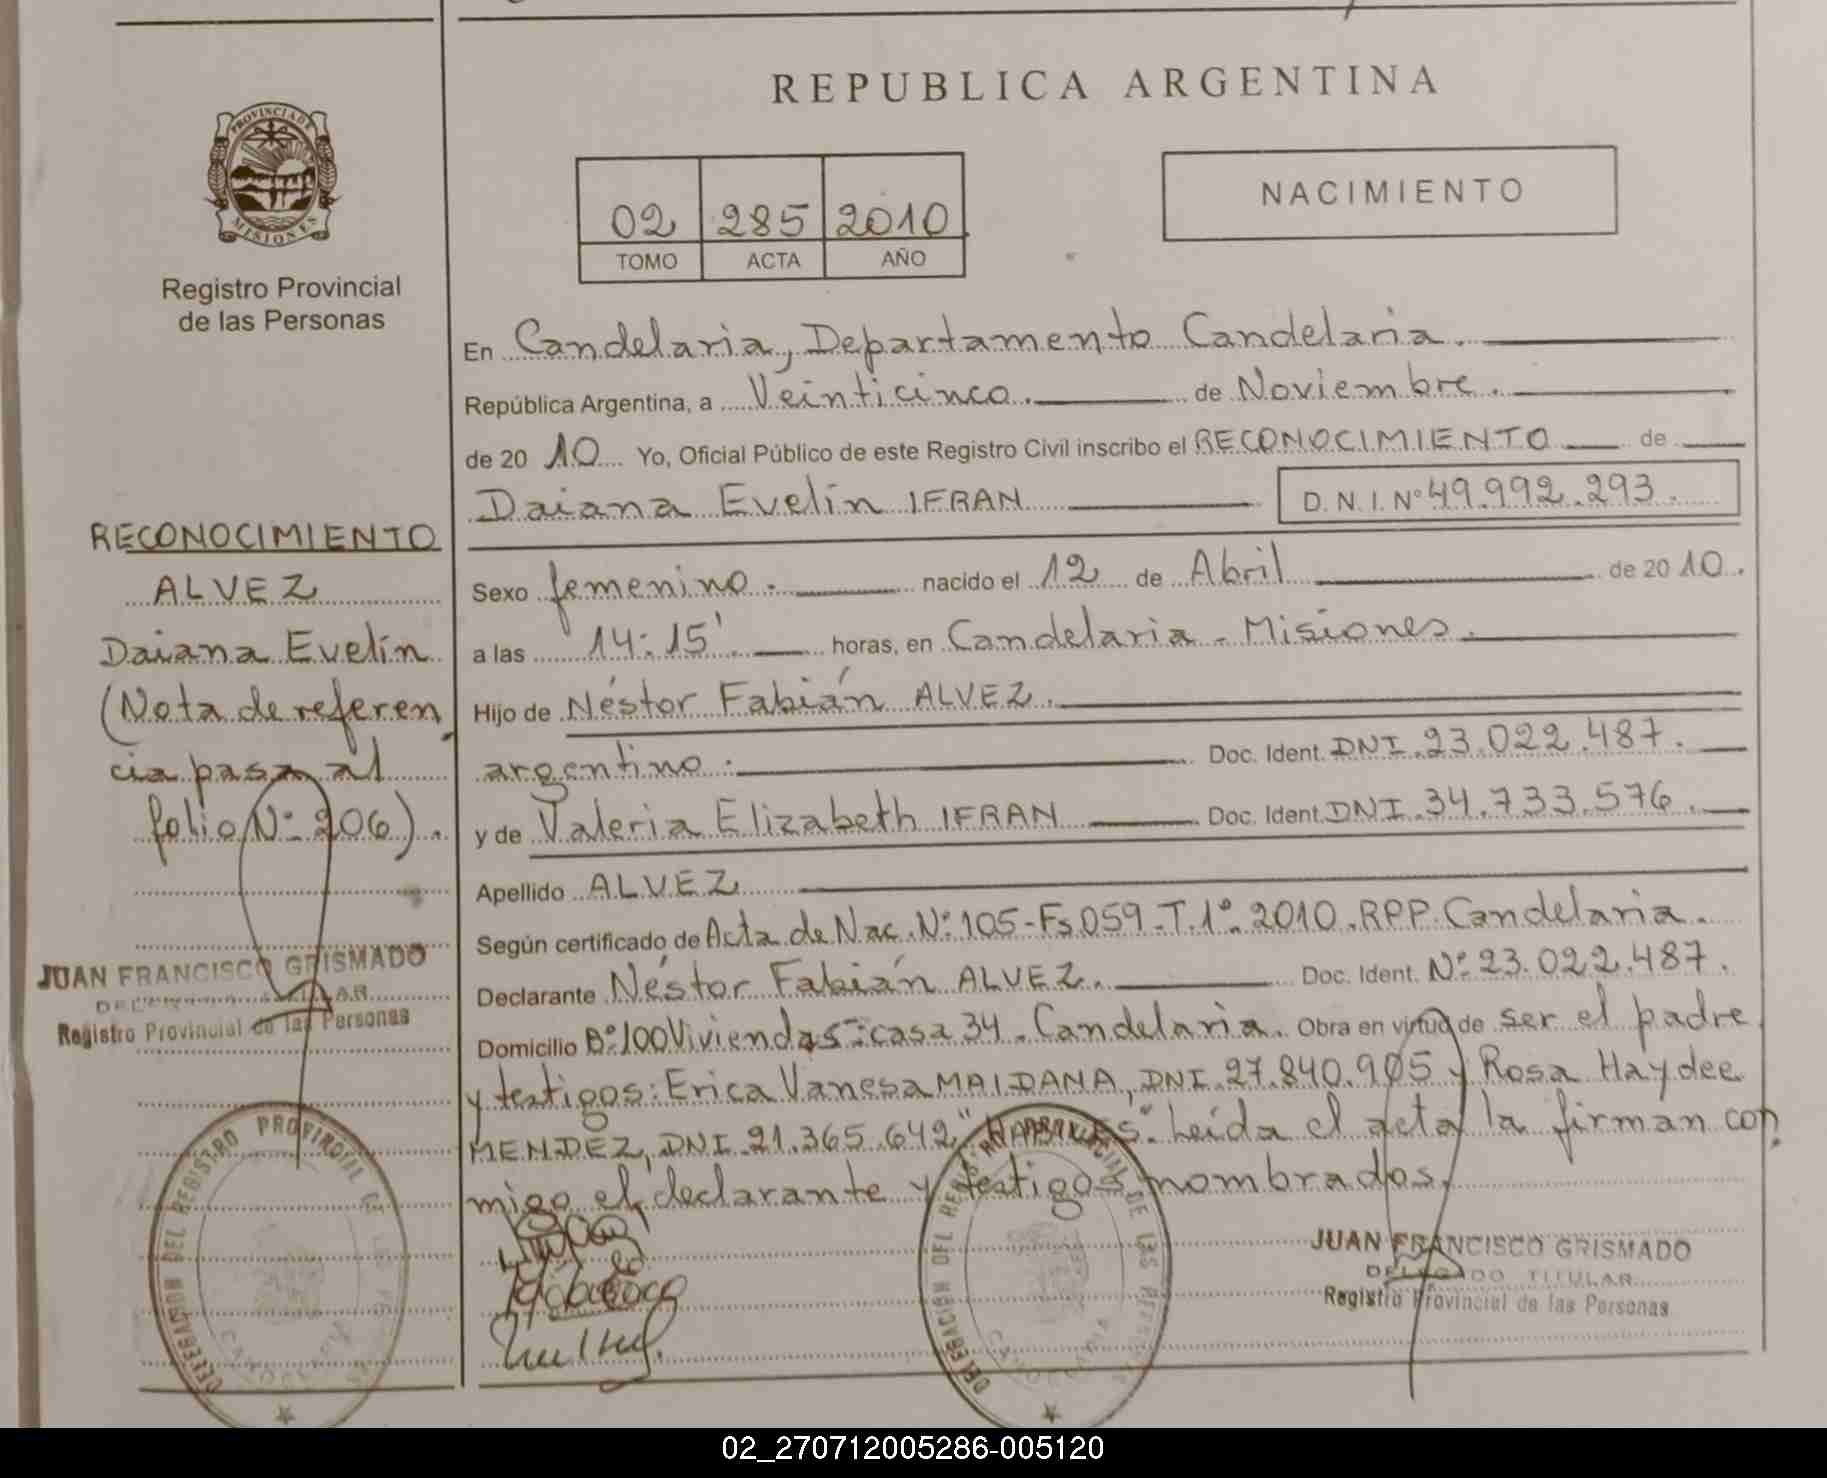 REPUBLICA ARGENTINA
PROVINCIA DE
MISIONES
Registro Provincial
de las Personas
02 285 2010
TOMO ACTA AÑO
NACIMIENTO
En Candelaria, Departamento Candelaria.
República Argentina, a Veinticinco. de Noviembre.
de 20 10 Yo, Oficial Público de este Registro Civil inscribo el RECONOCIMIENTO de
Daiana Evelín IFRAN D.N.I. Nº 49.992.293.
Sexo femenino. nacido el 12 de Abril de 20 10.
a las 14:15' horas, en Candelaria - Misiones.
Hijo de Néstor Fabián ALVEZ.
argentino. Doc. Ident. DNI. 23.022.487.
y de Valeria Elizabeth IFRAN Doc. Ident. DNI. 34.733.576.
Apellido ALVEZ
Según certificado de Acta de Nac. Nº 105-Fs 059-T. 1º. 2010. RPP. Candelaria.
Declarante Néstor Fabián ALVEZ. Doc. Ident. Nº 23.022.487.
Domicilio Bº 100 Viviendas - casa 34. Candelaria. Obra en virtud de ser el padre
y testigos: Erica Vanesa MAIDANA, DNI. 27.840.905 y Rosa Haydee
MENDEZ, DNI. 21.365.642, Leída el acta la firman con
migo el declarante y testigos nombrados.
JUAN FRANCISCO GRISMADO
DELEGADO TITULAR
Registro Provincial de las Personas
RECONOCIMIENTO
ALVEZ
Daiana Evelín
(Nota de referen
cia pasa al
folio Nº 206).
JUAN FRANCISCO GRISMADO
Registro Provincial de las Personas
DELEGACION DEL REGISTRO PROVINCIAL DE LAS PERSONAS
CANDELARIA
DELEGACION DEL REGISTRO PROVINCIAL DE LAS PERSONAS
CANDELARIA
02_270712005286-005120